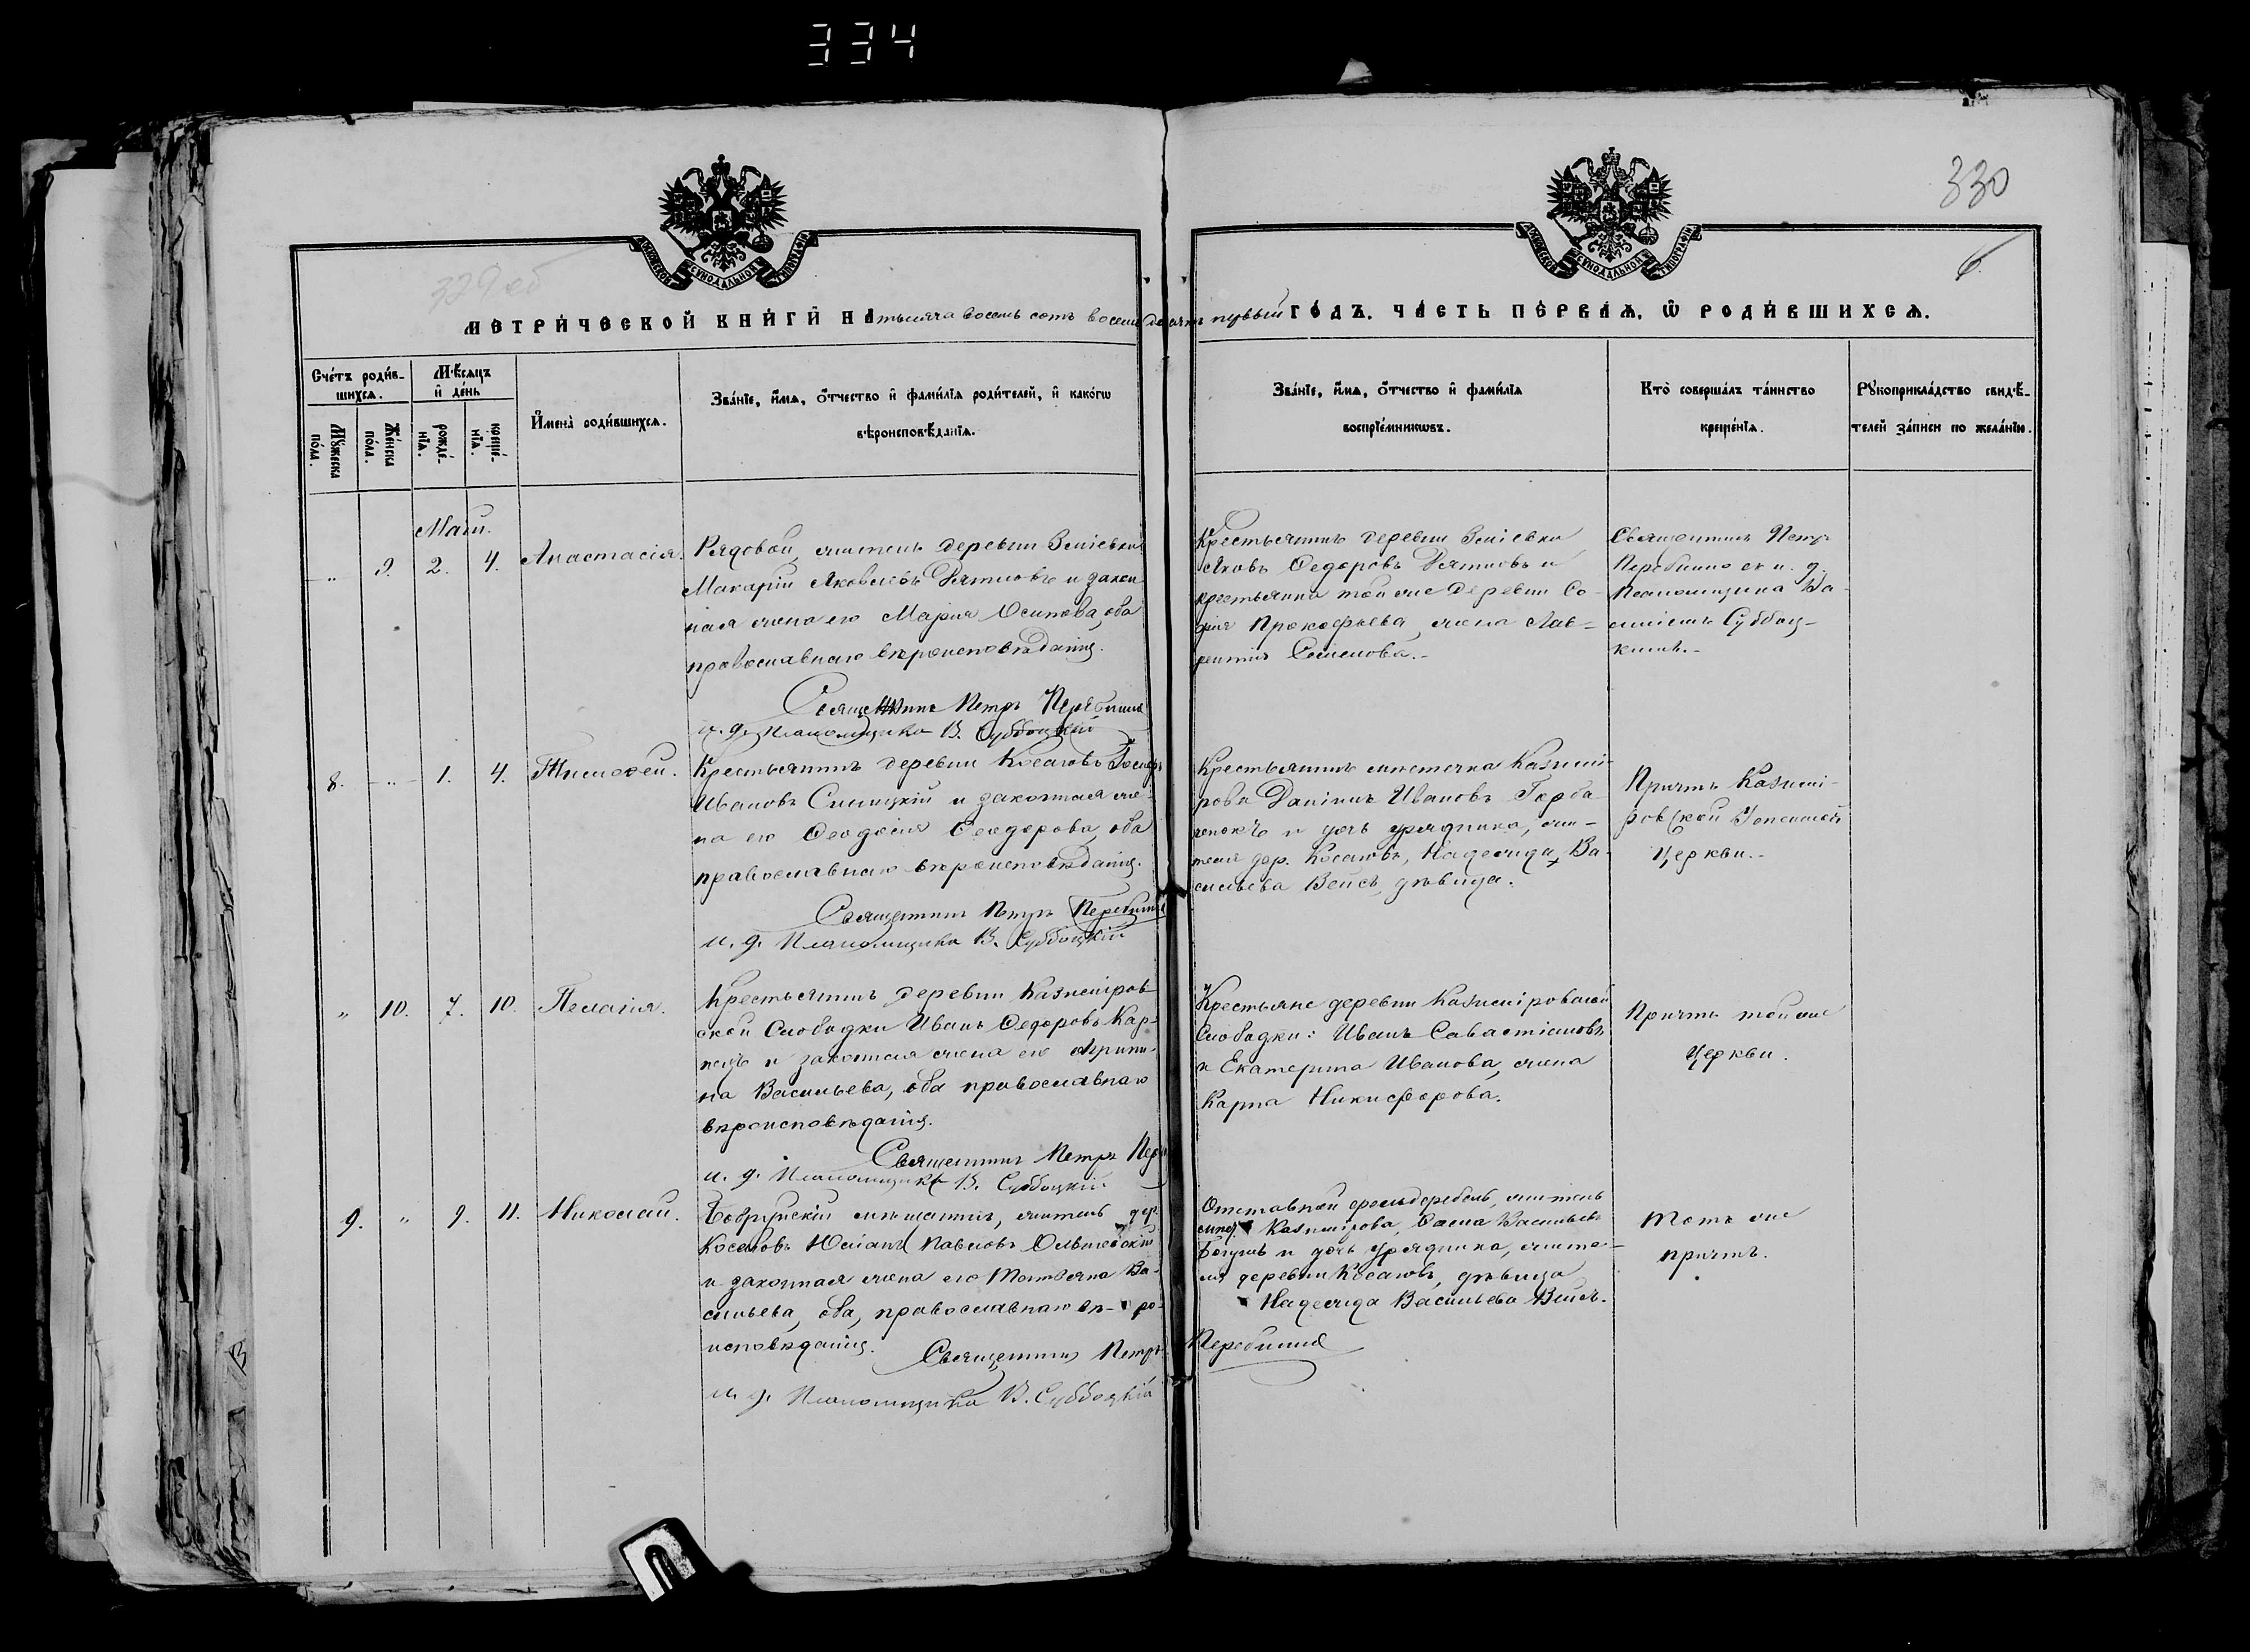 334
330
6
МОСКОВСКОЙ СѴНОДАЛЬНОЙ ТИПОГРАФІИ
МОСКОВСКОЙ СѴНОДАЛЬНОЙ ТИПОГРАФІИ
329 об
МЕТРИ́ЧЕСКОЙ КНИ́ГИ НА тысяча восемь сотъ восемьдесятъ первый ГО́ДЪ. ЧА́СТЬ ПЕ́РВАѦ, Ѿ РОДИ́ВШИХСѦ.
Сче́тъ роди́в-
шихсѧ.
Мꙋжеска по́ла.
Же́нска по́ла.
Мѣ́сѧцъ
и҆ де́нь
рожде́-
нїѧ.
креще́-
нїѧ.
И҆мена̀ роди́вшихсѧ.
Зва́нїе, и҆́мѧ, ѻ҆́тчество и҆ фами́лїѧ роди́телей, и҆ како́гѡ
вѣроисповѣ́данїѧ.
Зва́нїе, и҆́мѧ, ѻ҆́тчество и҆ фами́лїѧ
воспрїе́мникѡвъ.
Кто̀ соверша́лъ та́инство
креще́нїѧ.
Рꙋкоприкла́дство свидѣ́-
телей за́писи по жела́нїю.
Маій.
„ 9. 2. 4. Анастасія.
Рядовой, житель деревни Зміевки
Макарій Яковлевъ и закон
ная жена его Марія Осипова, оба
православнаго вѣроисповѣданія.
Священникъ Петръ
и. д. Псаломщика В. Субботскій
Крестьянинъ деревни Зміевки
Яковъ Ѳедоровъ и
крестьянка той же деревни Со-
фія Прокофьева, жена Лав-
рентія Семенова.-
Священникъ Петръ
съ и. д.
Псаломщика Ва-
силіемъ Суббот-
кимъ.-
8. „ 1. 4. Тимоѳей.
Крестьянинъ деревни Косаковъ
Ивановъ Синицкій и законная же-
на его Ѳеодосія Ѳеодорова, оба
православнаго вѣроисповѣданія.
Священникъ Петръ
и. д. Псаломщика В. Субботскій
Крестьянинъ мѣстечка Казими-
рова Даніилъ Ивановъ Горба
ченокъ и дочь урядника, жи-
теля дер. Косаковъ, Надежда Ва-
сильева Вейсъ, дѣвица.
Причтъ Казими-
ровской Успенской
Церкви.-
„ 10. 7. 10. Пелагія.
Крестьянинъ деревни Казимиров-
ской Слободки Иванъ Ѳедоровъ Кар-
пецъ и законная жена его Агрипи-
на Васильева, оба православнаго
вѣроисповѣданія.
Священникъ Петръ
и. д. Псаломщика В. Субботскій.
Крестьяне деревни Казимировской
Слободки: Иванъ Савастіановъ
и Екатерина Иванова, жена
Карпа Никифорова.
Причтъ той же
Церкви.
9. „ 9. 11. Николай.
Бобруйскій мѣщанинъ, житель дер.
Косаковъ Юліанъ Павловъ Ольшевскій
и законная жена его Татьяна Ва-
сильева, оба, православнаго вѣ-ро-
исповѣданія.
Священникъ Петръ
и. д. Псаломщика В. Субботскій
Отставной фельдфебель, житель
мѣст. Казимирова, Савва Васильевъ
и дочь урядника, жите-
ля деревни Косаковъ, дѣвица
Надежда Васильева Вейсъ.
Тотъ же
причтъ.